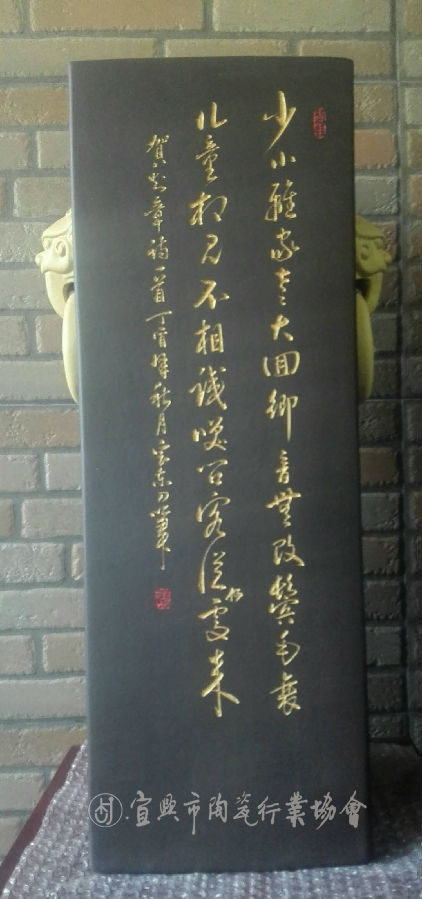 少小離家老大囬鄉音無改鬢毛衰
儿童相見不相識咲問客從何處来
賀知章詩一首丁酉年秋月东刀筆
宜興市陶瓷行業協會